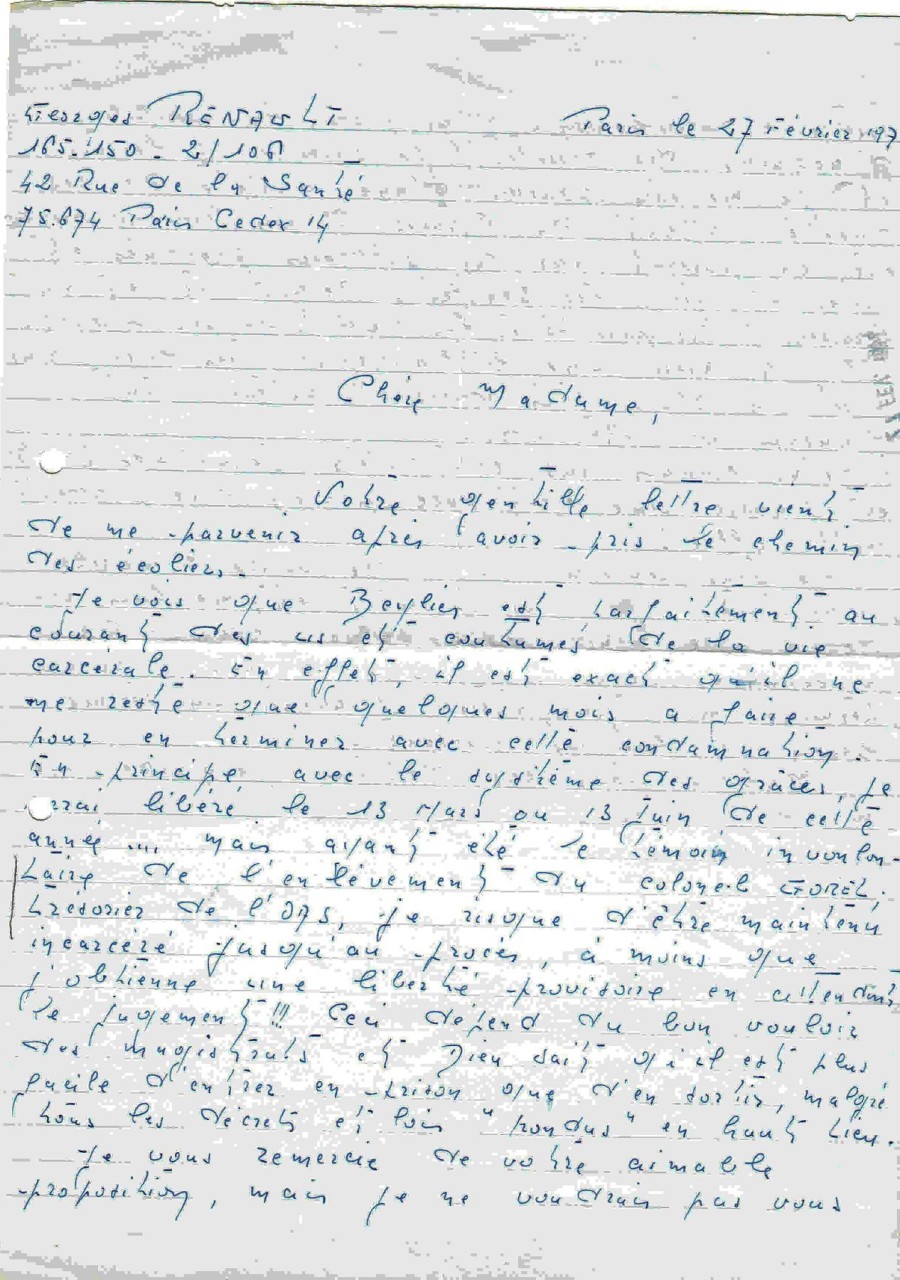 Georges RENAULT
Paris le 27 Février 197
165.150 - 2/106
42 Rue de la Santé
75.674 Paris Cedex 14
Chère Madame,
Votre gentille lettre vient
de me parvenir après avoir pris le chemin
des écoliers.
Je vois que Beylier est parfaitement au
courant des us et coutumes de la vie
carcérale. En effet, il est exact qu'il ne
me reste que quelques mois a faire
pour en terminer avec cette condamnation.
En principe, avec le système des grâces, je
serai libéré le 13 Mars ou 13 Juin de cette
année .... mais ayant été le témoin involon-
taire de l'enlèvement du colonel GOREL,
trésorier de l'OAS, je risque d'être maintenu
incarcéré jusqu'au procès, à moins que
j'obtienne une liberté provisoire en attendant
le jugement !!! Ceci dépend du bon vouloir
des magistrats et Dieu sait qu'il est plus
facile d'entrer en prison que d'en sortir, malgré
tous les décrets et lois "pondus" en haut lieu.
Je vous remercie de votre aimable
proposition, mais je ne voudrais pas vous